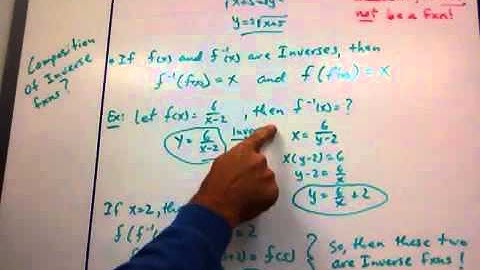 y = 3
not be a fxn!
Composition
of Inverse
fxns?
• If f(x) and f⁻¹(x) are Inverses, then
f⁻¹(f(x)) = x and f(f⁻¹(x)) = x
Ex: Let f(x) = 6/(x-2), then f⁻¹(x) = ?
y = 6/(x-2)
x = 6/(y-2)
x(y-2) = 6
y-2 = 6/x
y = 6/x + 2
If x=2, the
f(f⁻¹
= f(5)
So, then these two
are Inverse fxns!